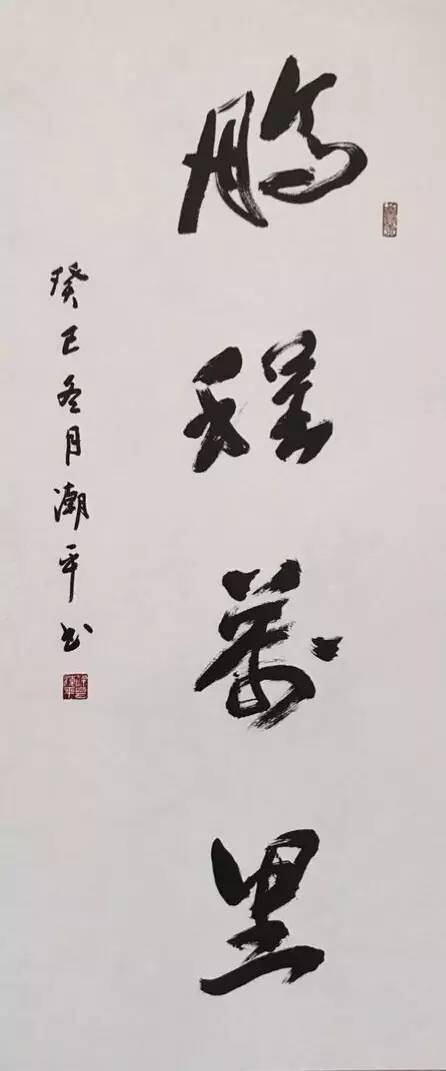 鹏程萬里
癸巳冬月潮平书